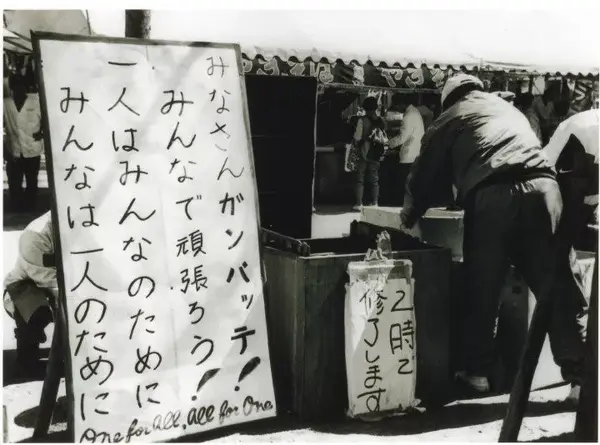 みなさんガンバッテ!
みんなで頑張ろう!
一人はみんなのために
みんなは一人のために
One for all, all for One
2時で
修了します